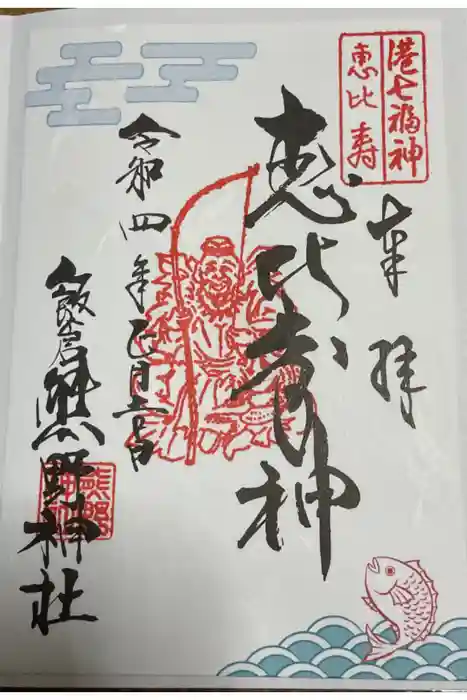 港七福神
恵比寿
奉拝
恵比寿神
令和四年正月
飯倉熊野神社